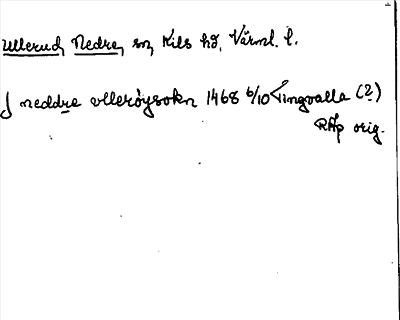 Ullerud, Nedre, sn, Kils hd, Värml. l.
J neddre vllerøysokn 1468 6/10 Tingvalla (?)
RAp orig.